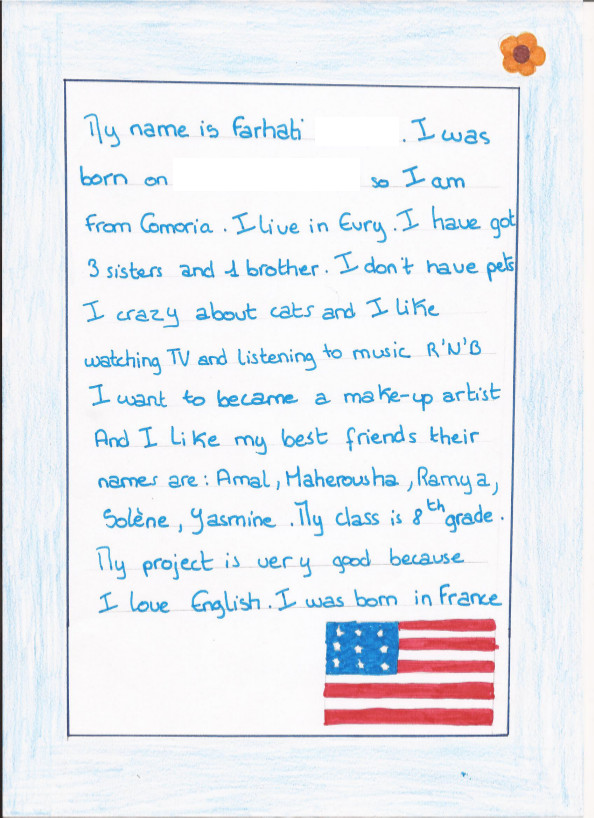 My name is Farhati . I was
born on so I am
from Comoria . I live in Evry . I have got
3 sisters and 1 brother . I don't have pets
I crazy about cats and I like
watching TV and listening to music R'N'B
I want to became a make-up artist
And I Like my best friends their
names are : Amal , Maherousha , Ramya ,
Solène , Yasmine . My class is 8th grade .
My project is very good because
I love English . I was born in France